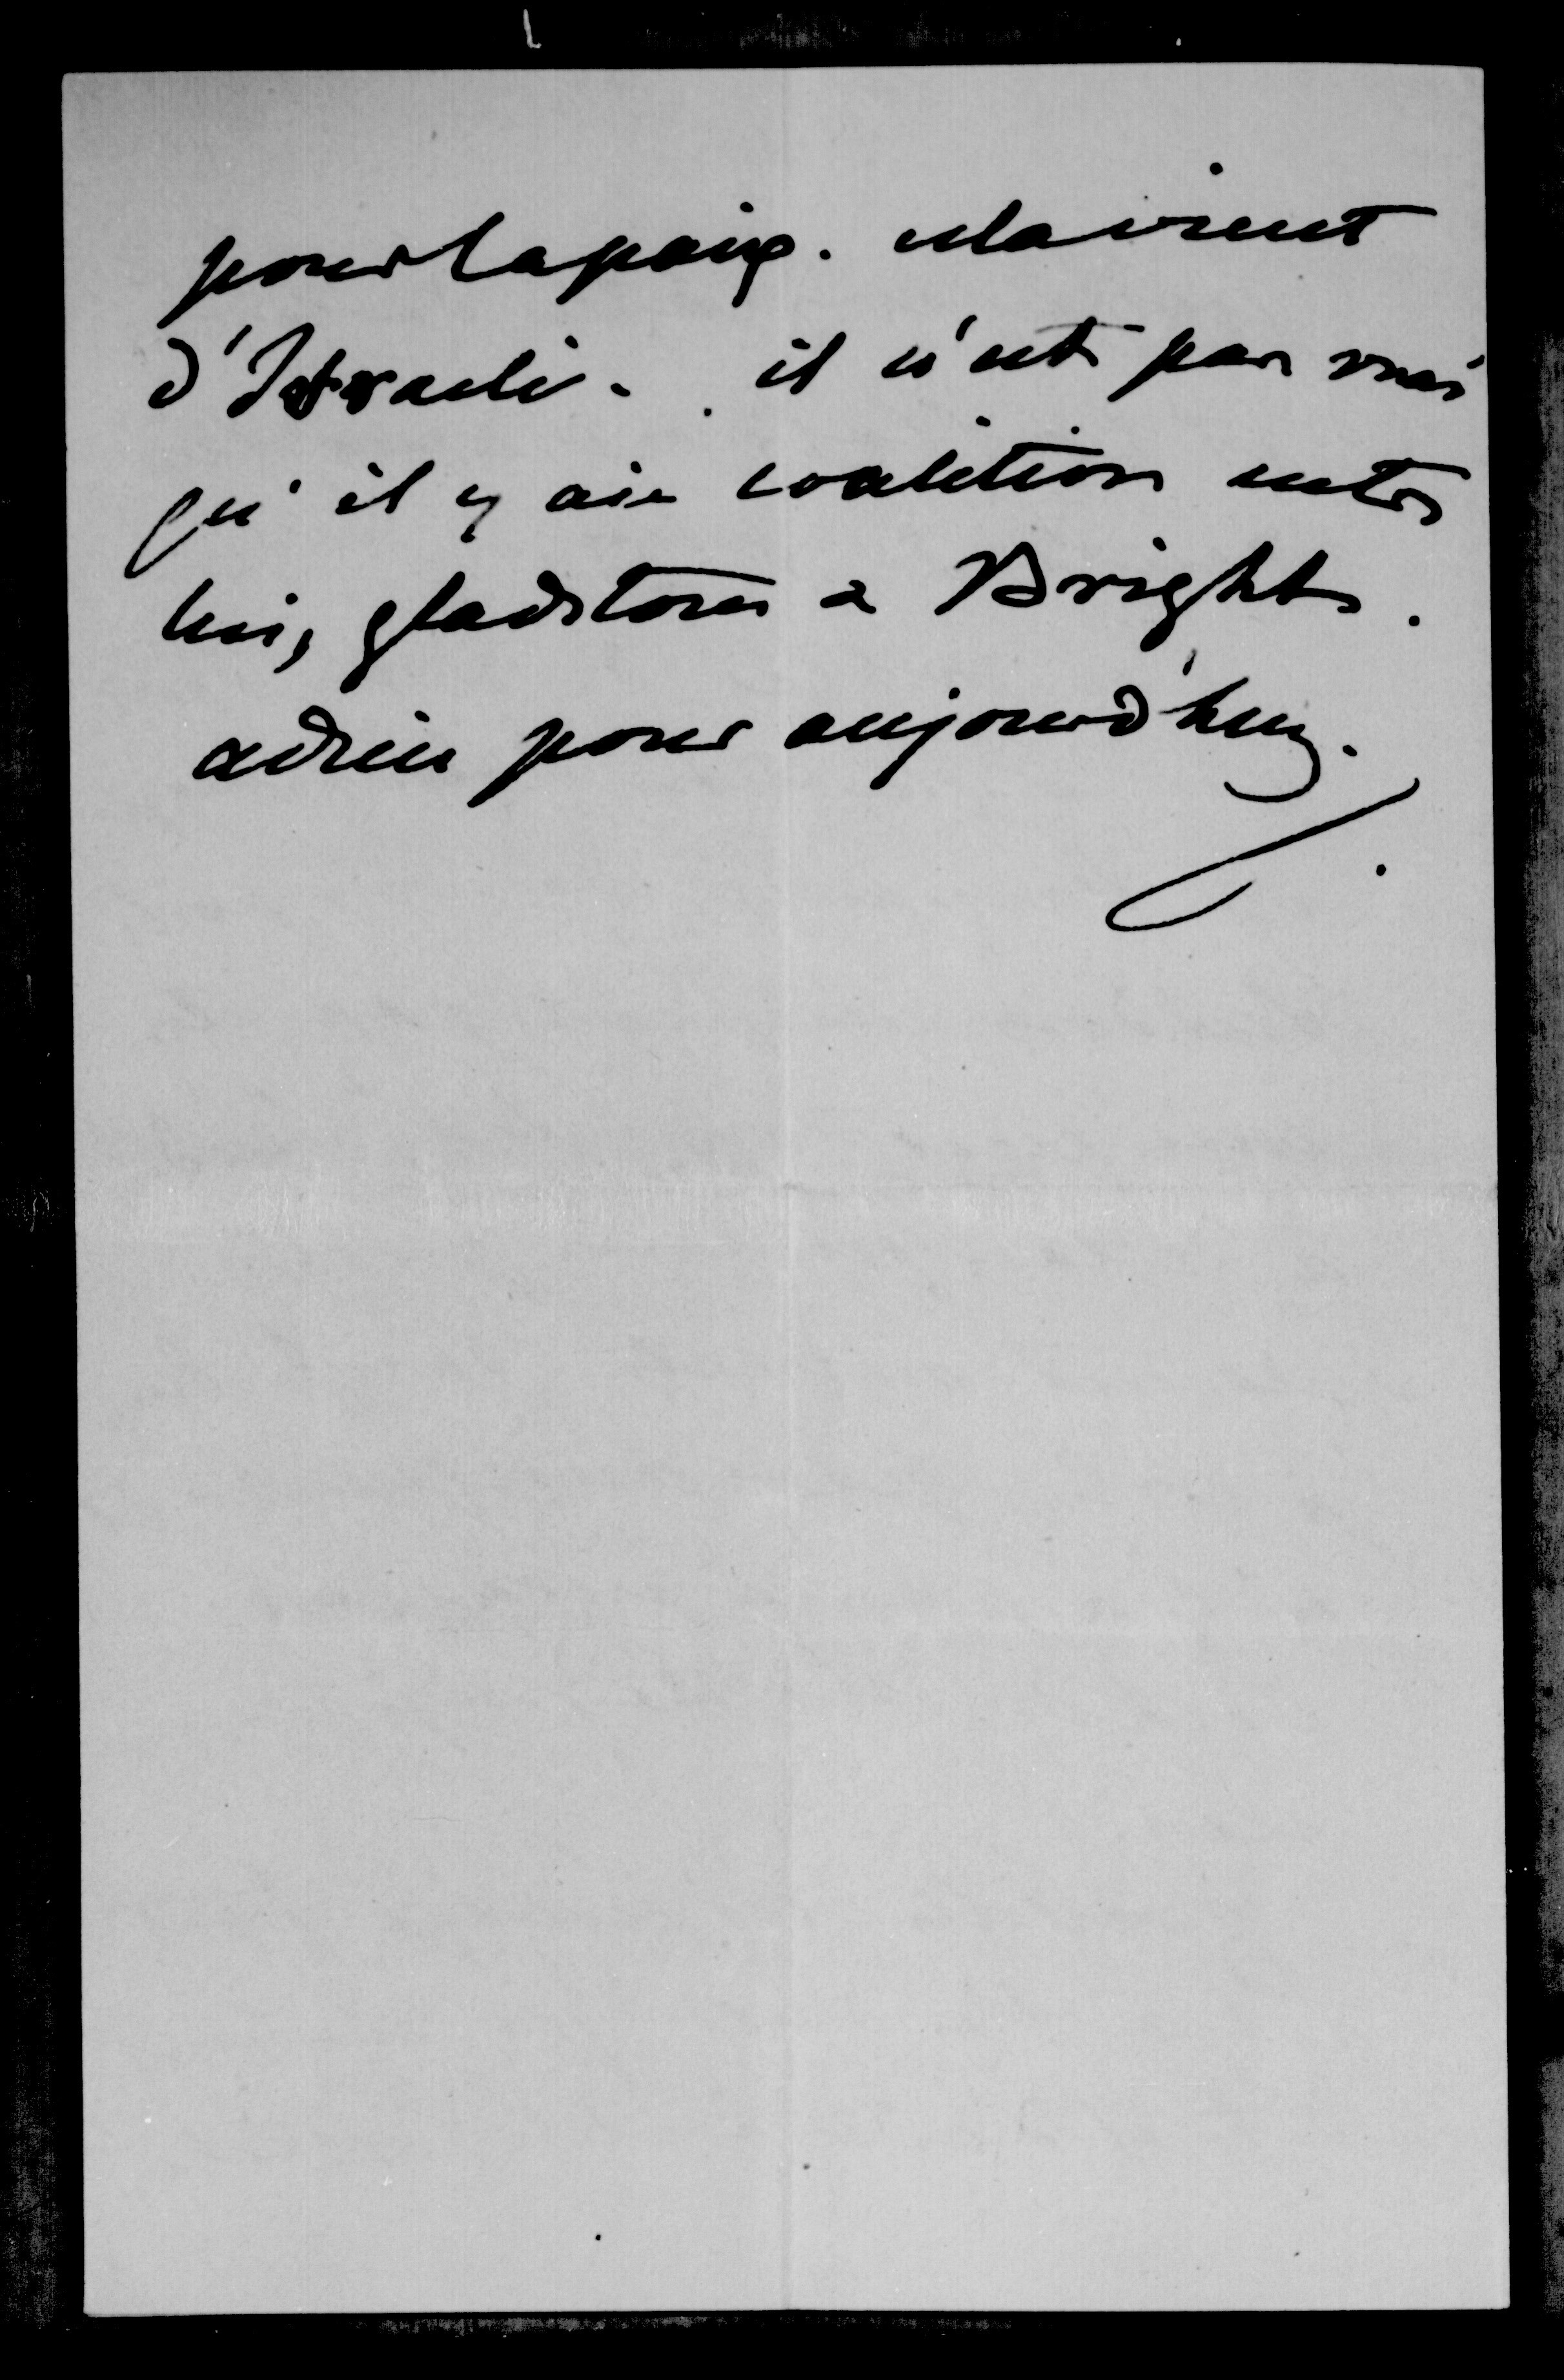 pour la paix. cela vient
d'Israeli. il n'est pas vrai
qu'il y ait coalition entre
lui, gladstone & Bright.
adieu pour aujourd'huy.